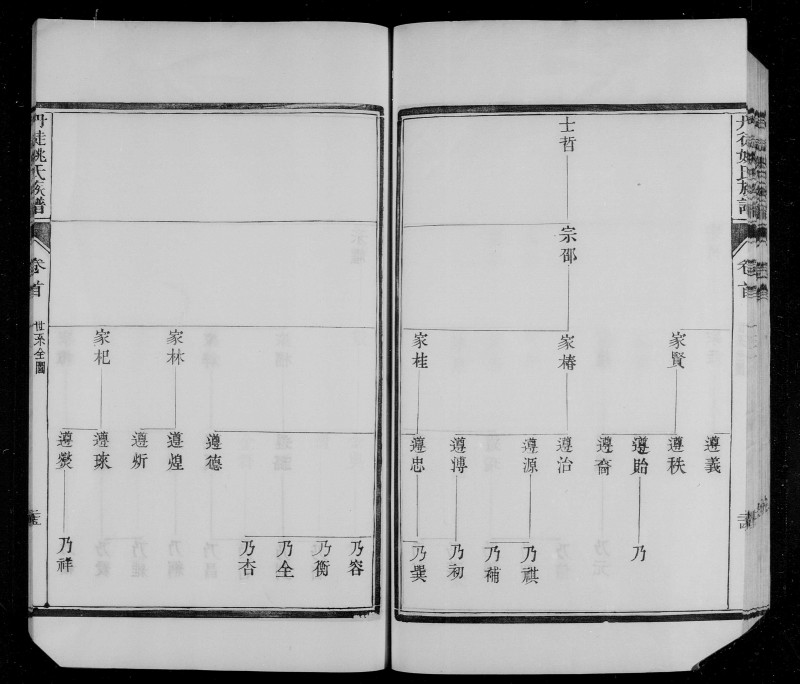 丹徒姚氏族譜
卷首
士哲
宗邵
家賢
家椿
家桂
遵義
遵秩
遵貽
遵裔
遵治
遵源
遵漙
遵忠
乃
乃祺
乃補
乃初
乃巽
家林
家杞
遵德
遵煌
遵炘
遵琭
遵爕
乃容
乃衡
乃全
乃杏
乃祥
丹徒姚氏族譜
卷首
世系全圖